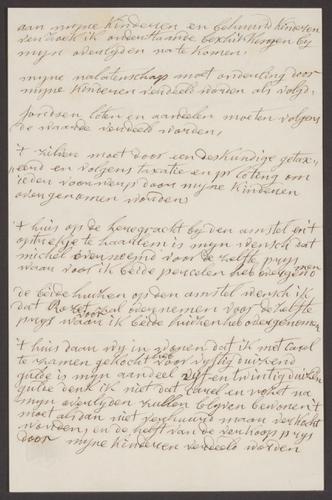 aan mijne kinderen en behuwd kinderen
verzoek ik onderstaande beschikkingen bij
mijn overlyden na te komen.
myne nalatenschap moet onderling door
myne kinderen verdeeld worden als volgd,
loten en aandeelen moeten volgens
de waarde verdeeld worden,
't zilver moet door een deskundige getax
eerd en volgens taxatie en pr loting om
ieder voorwerp door myne kinderen
overgenomen worden
't huis op de heregracht by den amstel en 't
optrekje te haarlem is myn wensch dat
michel overneemt voor de helfte prys
waar voor ik beide perceelen heb overgenomen
de beide huizen op den amstel wensch ik
dat zal overnemen voor de helfte
prys waar voor ik beide huizen heb overgenomen
't huis daar wy in wonen dat ik met Carel
te zamen gekocht heb voor vyftig duizend
gulde is myn aandeel vyf en twintig duizend
gulde denk ik niet dat Carel en na
myn overlyden zullen blyven bewonen 't
moet alsdan niet verhuurd maar verkocht
worden en de helft van de verkoop prys
door myne kinderen verdeeld worden